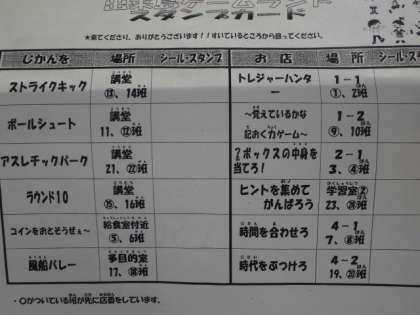 スタンプカード
★来てくださり、ありがとうございます!!すいているところから回ってください。
じかんを 場所 シール・スタンプ お店 場所 シール・ス
ストライクキック 講堂 ⑬、14班 トレジャーハンター 1-1 ①、2班
ボールシュート 講堂 11、⑫班 ~覚えているかな 記おく力ゲーム~ 1-2 ⑨、10班
アスレチックパーク 講堂 21、㉒班 ?ボックスの中身を当てろ! 2-1 3、④班
ラウンド10 講堂 ⑮、16班 ヒントを集めて がんばろう 学習室② 23、㉔班
コインをおとそうぜぇ~ 給食室付近 ⑤、6班 時間を合わせろ 4-1 7、⑧班
風船バレー 多目的室 17、⑱班 時代をぶつけろ 4-2 19、⑳班
・○がついている班が先に店番をしています。